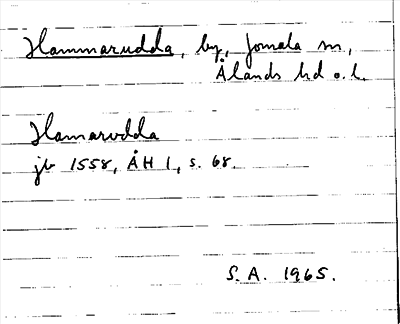 Hammarudda, by, Jomala sn,
Ålands hd o. l.
Hamarudda
jb 1558, ÅH 1, s. 68.
S. A. 1965.